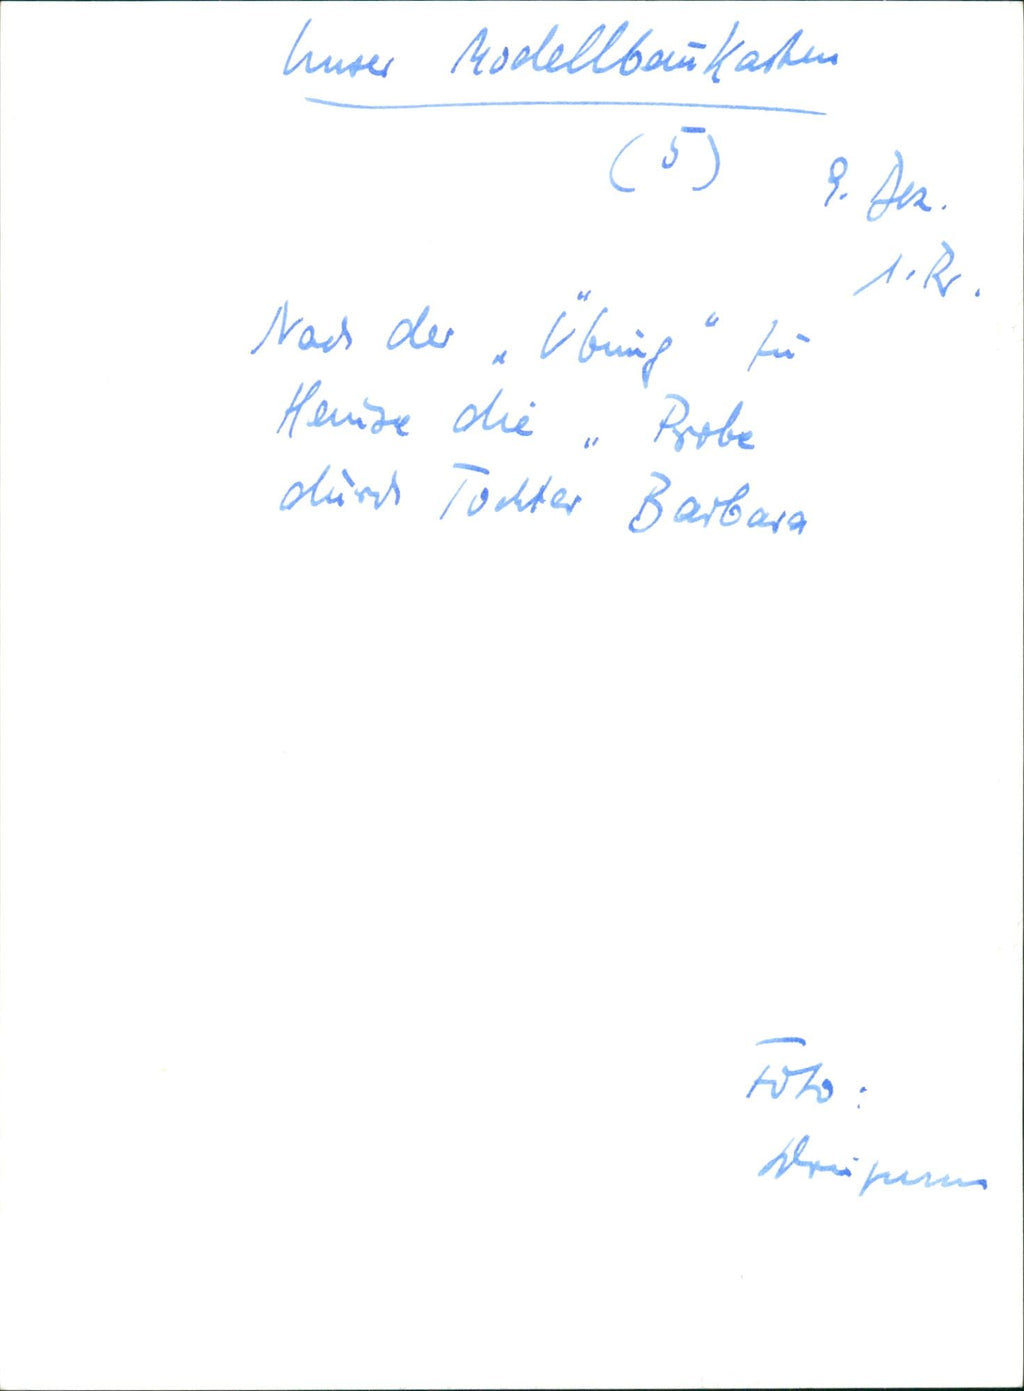 Unser Modellbaukasten
(5)
9. Dez.
1. Pr.
Nach der „Übung“ zu
Hause die „Probe
durch Tochter Barbara
Foto: